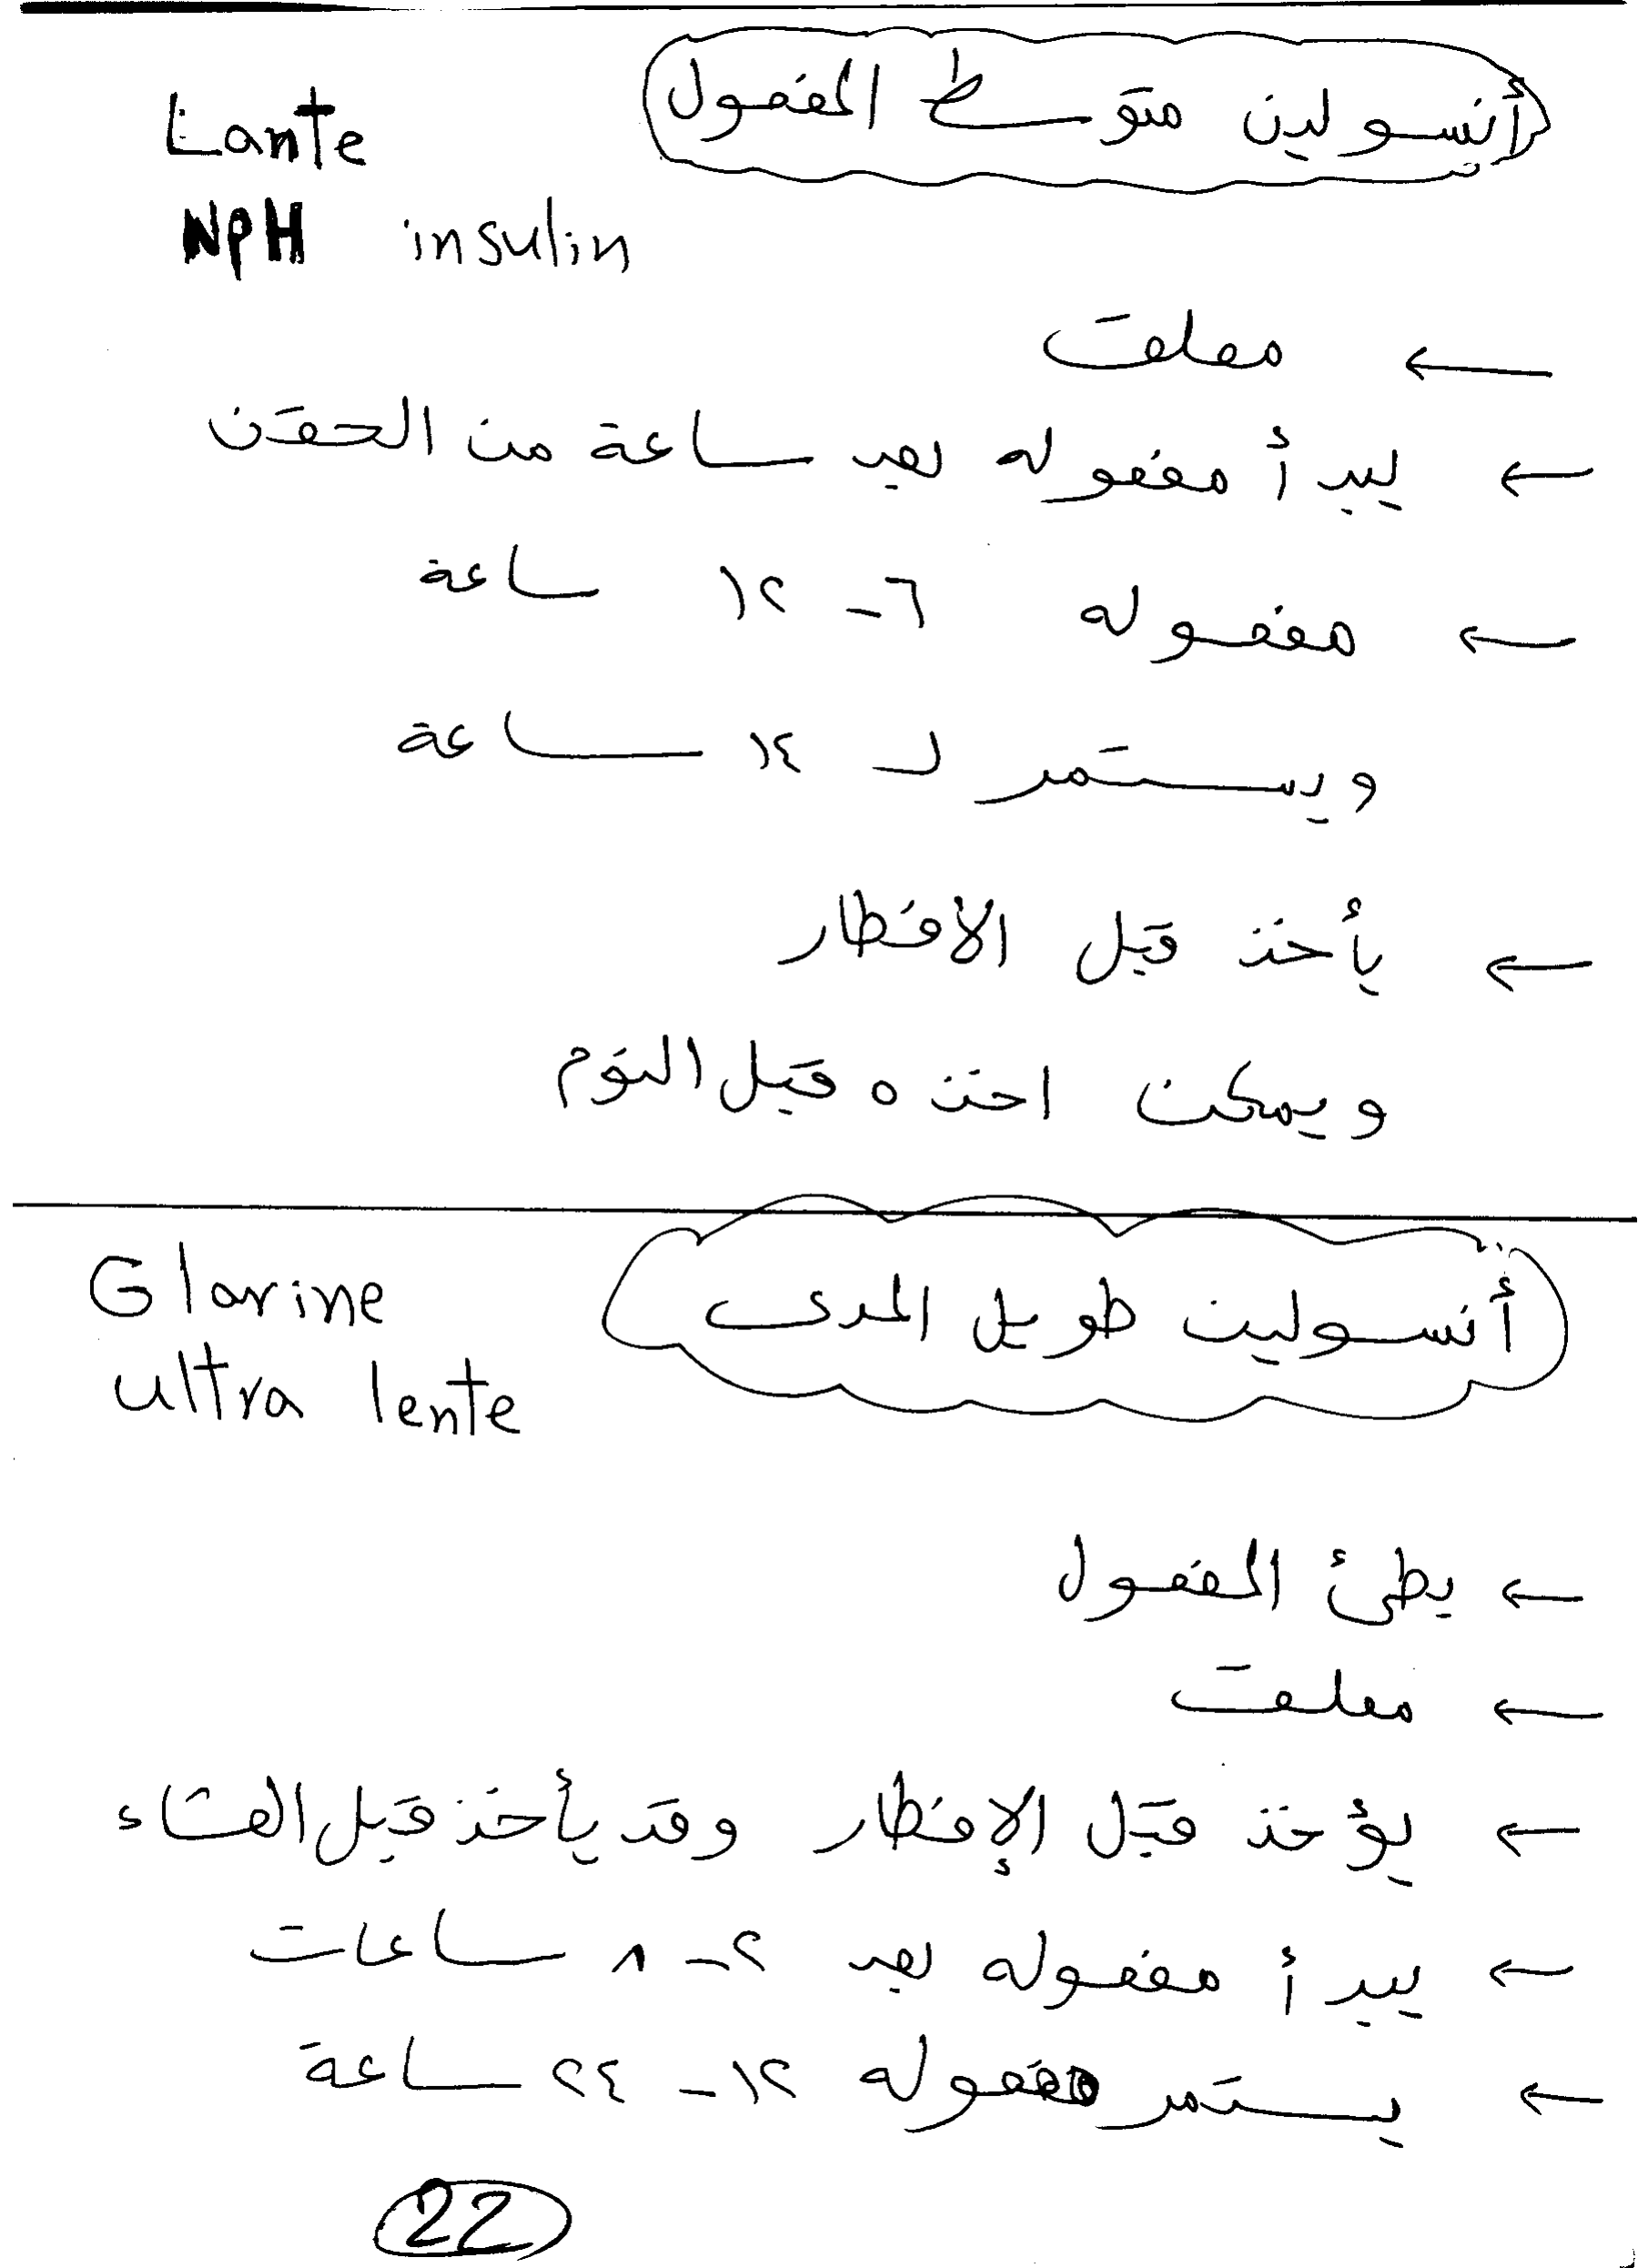 أنسولين متوسط المفعول
Lante
NPH insulin
← معلق
← يبدأ مفعوله بعد ساعة من الحقن
← مفعوله ٦ - ١٢ ساعة
ويستمر لـ ١٤ ساعة
← يأخذ قبل الافطار
ويمكن اخذه قبل النوم
أنسولين طويل المدى
Glarine
ultra lente
← بطئ المفعول
← معلق
← يؤخذ قبل الإفطار وقد يأخذ قبل العشاء
← يبدأ مفعوله بعد ٢ - ٨ ساعات
← يستمر مفعوله ١٢ - ٢٤ ساعة
22